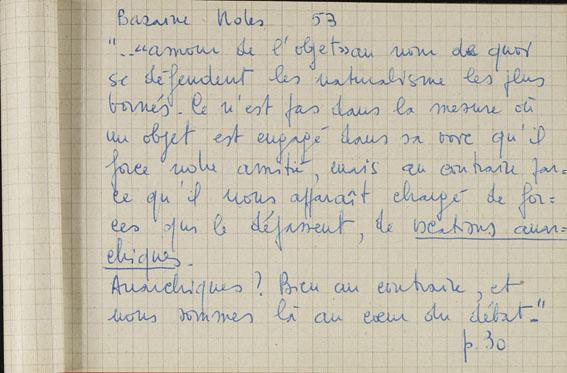 Bazaine Notes 53
"..«amour de l'objet» au nom de quoi
se défendent les naturalisme les plus
bornés. Ce n'est pas dans la mesure où
un objet est engagé dans sa voie qu'il
force notre amitié, mais au contraire par=
ce qu'il nous apparaît chargé de for=
ces qui le dépassent, de vocations anar=
chiques.
Anarchiques? Bien au contraire, et
nous sommes là au cœur du débat."
p.30